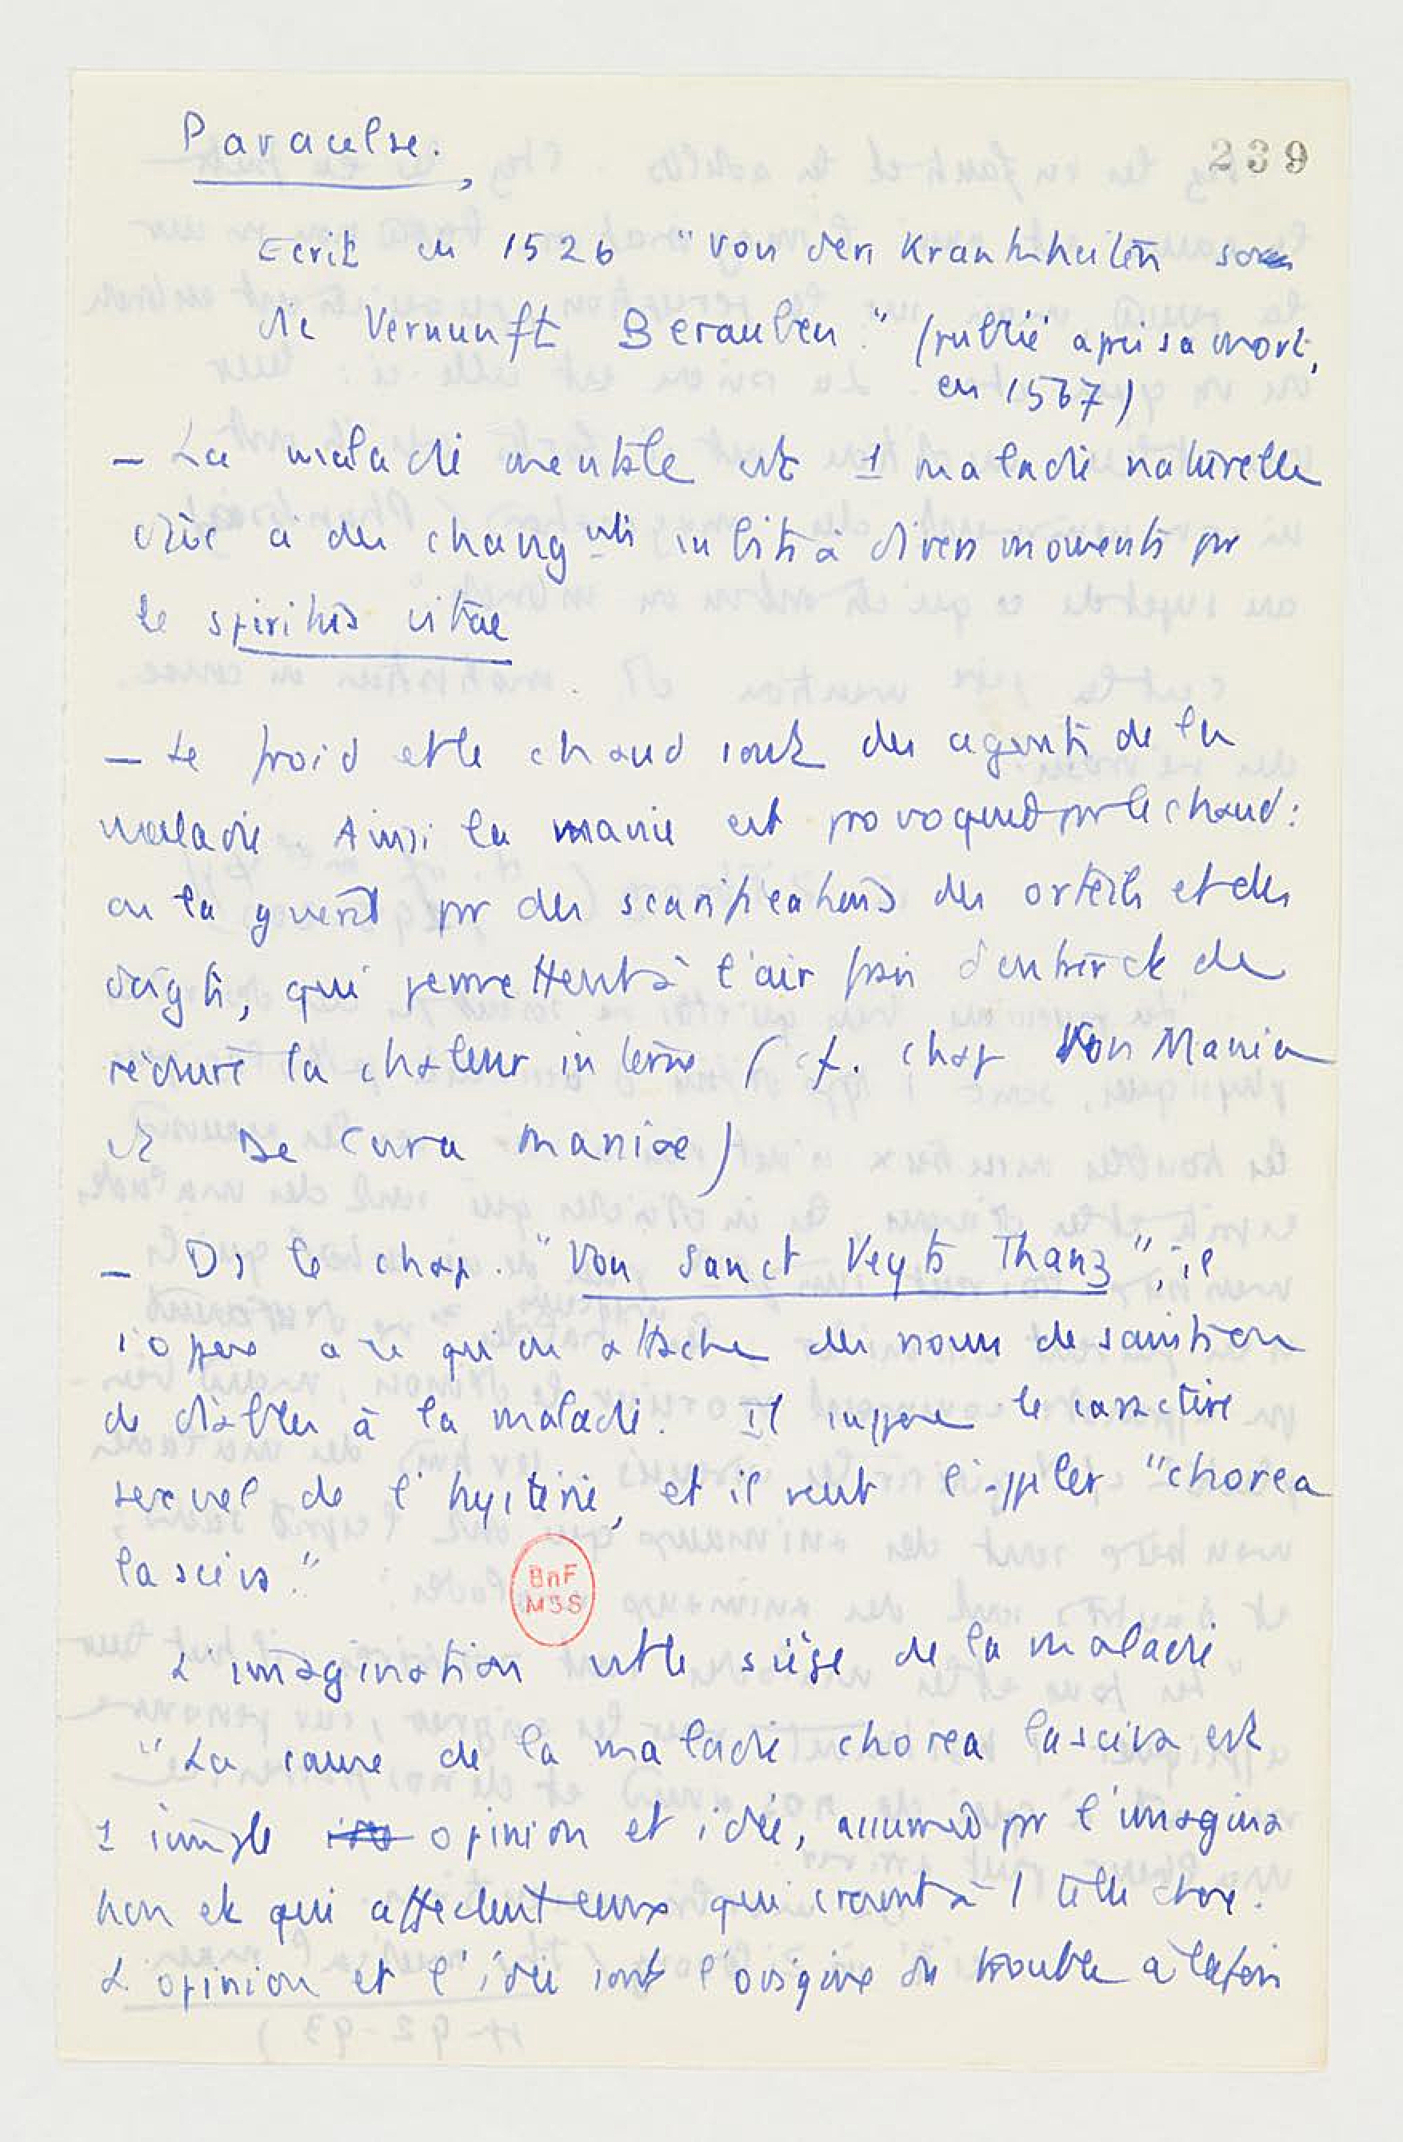 Paracelse.
239
Ecrit en 1526 "Von den Krankheiten so
die Vernunft Berauben." (publié après sa mort,
en 1567)
– La maladie mentale est 1 maladie naturelle
à des chang^nts à divers moments pr
le spiritus vitae
– Le froid et le chaud sont des agents de la
maladie Ainsi la manie est provoquée pr le chaud:
on la guérit pr des scarifications des orteils et des
doigts, qui permettent à l'air frais d'entrer et de
réduire la chaleur interne (cf. chap Von Mania
et De Cura maniae)
– Ds le chap. "Von Sanct Veyts Thanz", il
s'oppose à ce qu'on attache des noms de saints ou
de diables à la maladie. Il suppose le caractère
sexuel de l'hystérie, et il veut l'appeler "chorea
lasciva."
BnF
MSS
L'imagination est le siège de la maladie
"La cause de la maladie chorea lasciva est
1 simple opinion et idée, assumée pr l'imagina
tion et qui affectent ceux qui croient à 1 telle chose.
L'opinion et l'idée sont l'origine du trouble à la fois